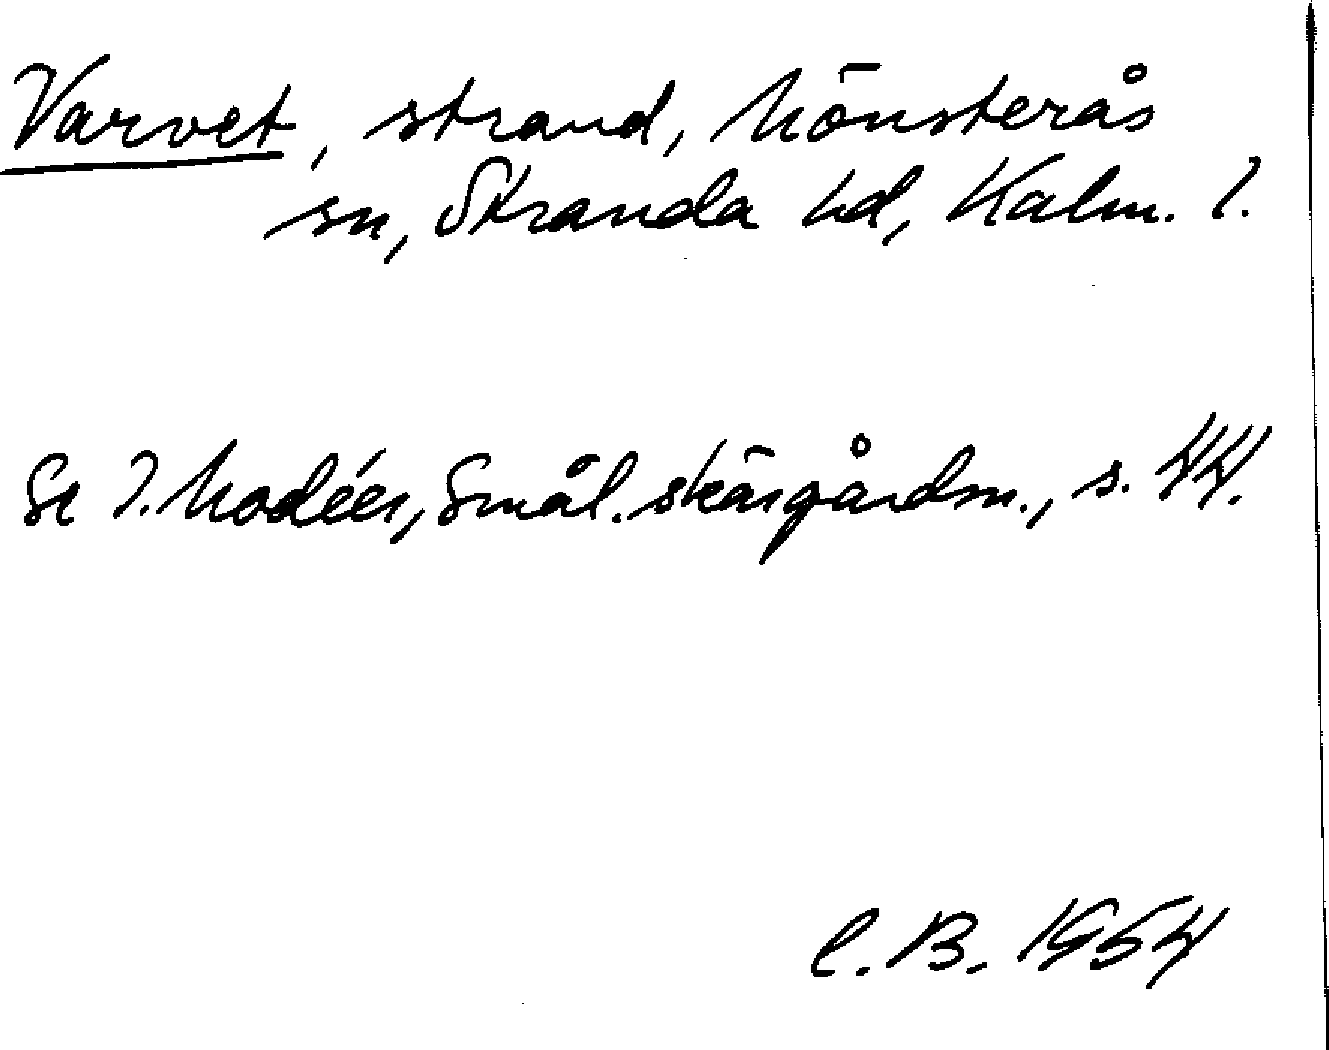 Varvet, strand, Mönsterås
sn, Stranda hd, Kalm. l.
Se I. Modéer, Smål. skärgårdsn., s. 44.
C. B. 1954